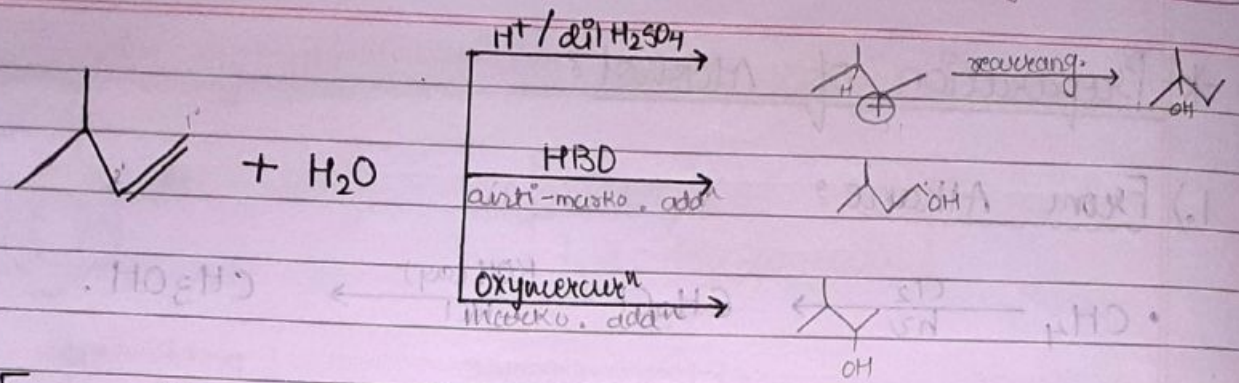 H⁺/dil H₂SO₄
H rearrang.
+
OH
1° 2° + H₂O
HBO
anti-marko. addⁿ
OH
Oxymercurⁿ
marko. addⁿ
OH